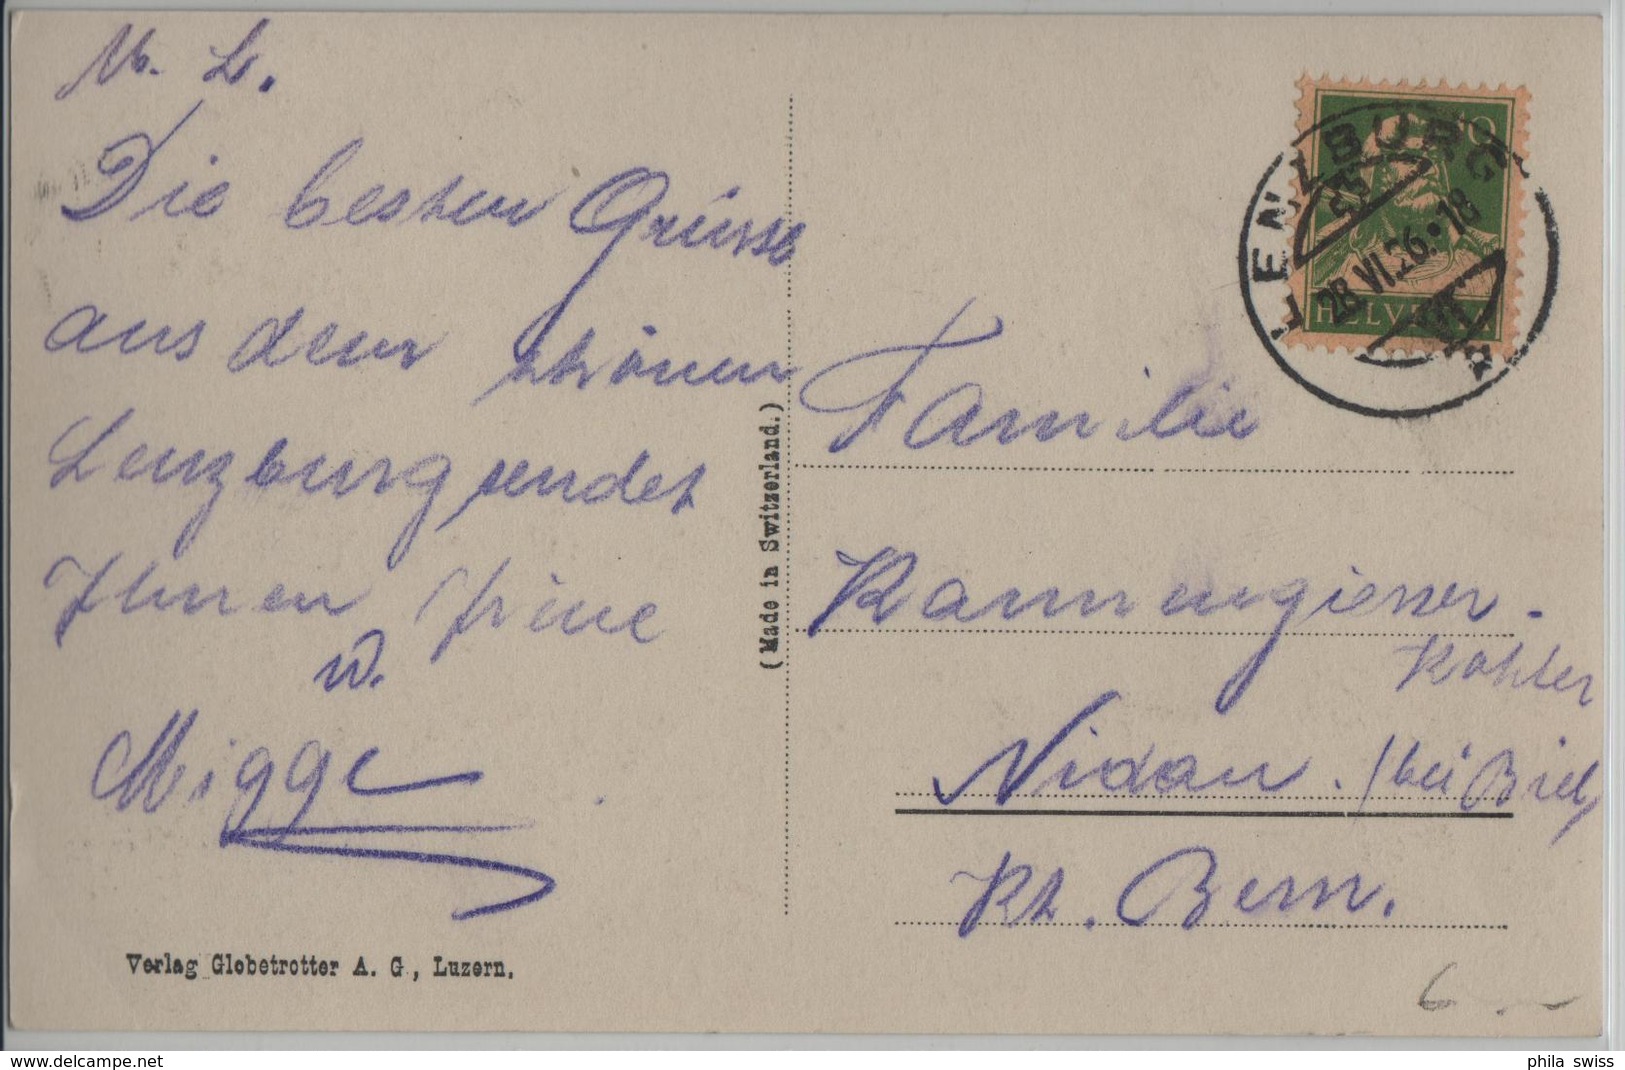 M. L.
Die besten Grüsse
aus dem schönen
Lenzburg sendet
Ihnen Irène
u.
Migge
Verlag Globetrotter A. G., Luzern.
(Made in Switzerland.)
10
HELVETIA
LENZBURG
28.VI.26.·18
Familie
Kannengiesser-
Kohler
Nidau. / bei Biel,
Kt. Bern.
6.–
delcampe.net
phila_swiss